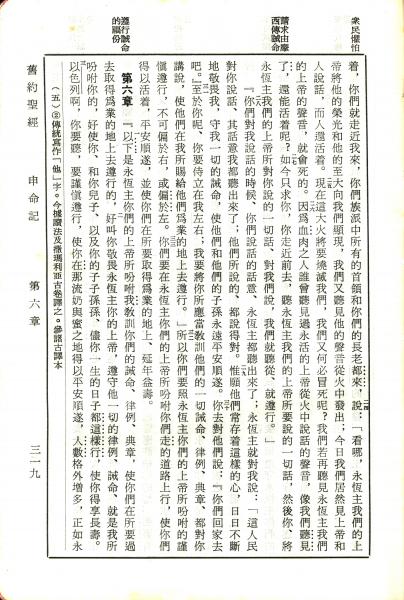 眾民懼怕
請求由摩西傳誡命
遵行誡命的福份
着，你們就走近我來，你們族派中所有的首領和你們的長老都來，說：『看哪，永恆主我們的上
帝將他的榮光和他的至大向我們顯現，我們又聽見他的聲音從火中發出；今日我們居然見上帝和
人說話，而人還活着。現在這大火將要燒滅我們，我們又何必冒死呢？我們若再聽見永恆主我們
的上帝的聲音，就會死的。因爲血肉之人誰曾聽見過永活的上帝從火中說話的聲音，像我們聽見
了，還能活着呢？如今只求你，你走近前去，聽永恆主我們的上帝所要說的一切話，然後你、將
永恆主我們的上帝所對你說的一切話、對我們說，我們就聽從、就遵行。』
『你們對我說話的時候、你們說話的話意、永恆主都聽出來了；永恆主就對我說：「這人民
對你說話、其話意我都聽出來了；他們所說的、都說得對。惟願他們常存着這樣的心、日日不斷
地敬畏我、守我一切的誡命、使他們和他們的子孫永遠平安順遂。你去對他們說：『你們回家去
吧。』至於你呢、你要侍立在我左右；我要將你所應當教訓他們的一切誡命、律例、典章、都對你
講說，使他們在我所賜給他們爲業的地上去遵行。」所以你們要照永恆主你們的上帝所吩咐的謹
慎遵行，不可偏於右，或偏於左。你們要在永恆主你們的上帝所吩咐你們走的道路上行，使你們
得以活着，平安順遂，並使你們在所要取得爲業的地上、延年益壽。
第六章 『以下是永恆主你們的上帝所吩咐我教訓你們的誡命、律例、典章、使你們在所要過
去取得爲業的地上去遵行的，好叫你敬畏永恆主你的上帝、遵守他一切的律例、誡命、就是我所
吩咐你的，好使你、和你兒子，以及你的子子孫孫、儘你一生的日子都這樣行，使你得享長壽。
以色列啊，你要聽，要謹慎遵行，使你在那流奶與蜜之地得以平安順遂，人數格外增多，正如永
（五）②傳統寫作「他」字。今據讀法及撒瑪利亞古卷譯之。參諸古譯本
舊約聖經 申命記 第六章 三一九